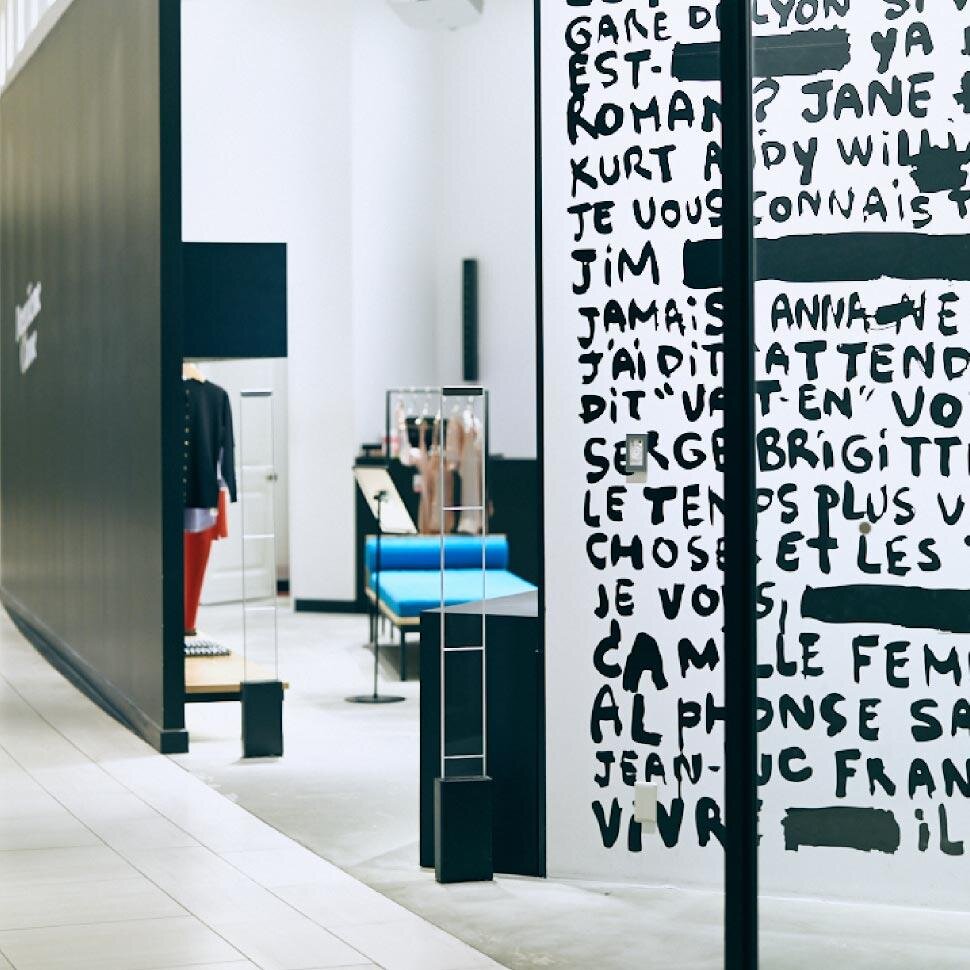 GARE DE LYON SI V
EST- YA
ROMAN? JANE
KURT ANDY WiLLi
JE VOUS CONNAiS T
JiM
JAMAiS ANNA NE
J'Ai DiT ATTEND
DiT "VAT-EN" VO
SERGE BRiGiTT
LE TEMPS PLUS V
CHOSE ET LES
JE VOUS,
CAMILLE FEMM
ALPHONSE SA
JEAN-LUC FRAN
ViVRE iL